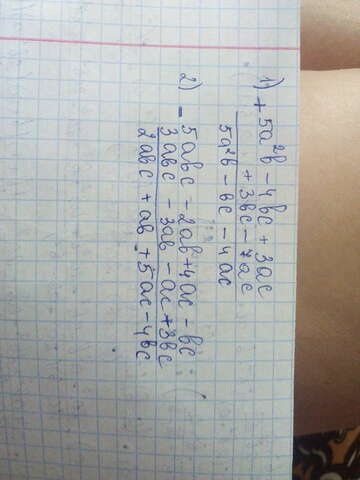 1) + 5a²b - 4bc + 3ac
+ 3bc - 7ac
5a²b - bc - 4ac
2) - 5abc - 2ab + 4ac - bc
3abc - 3ab - ac + 3bc
2abc + ab + 5ac - 4bc